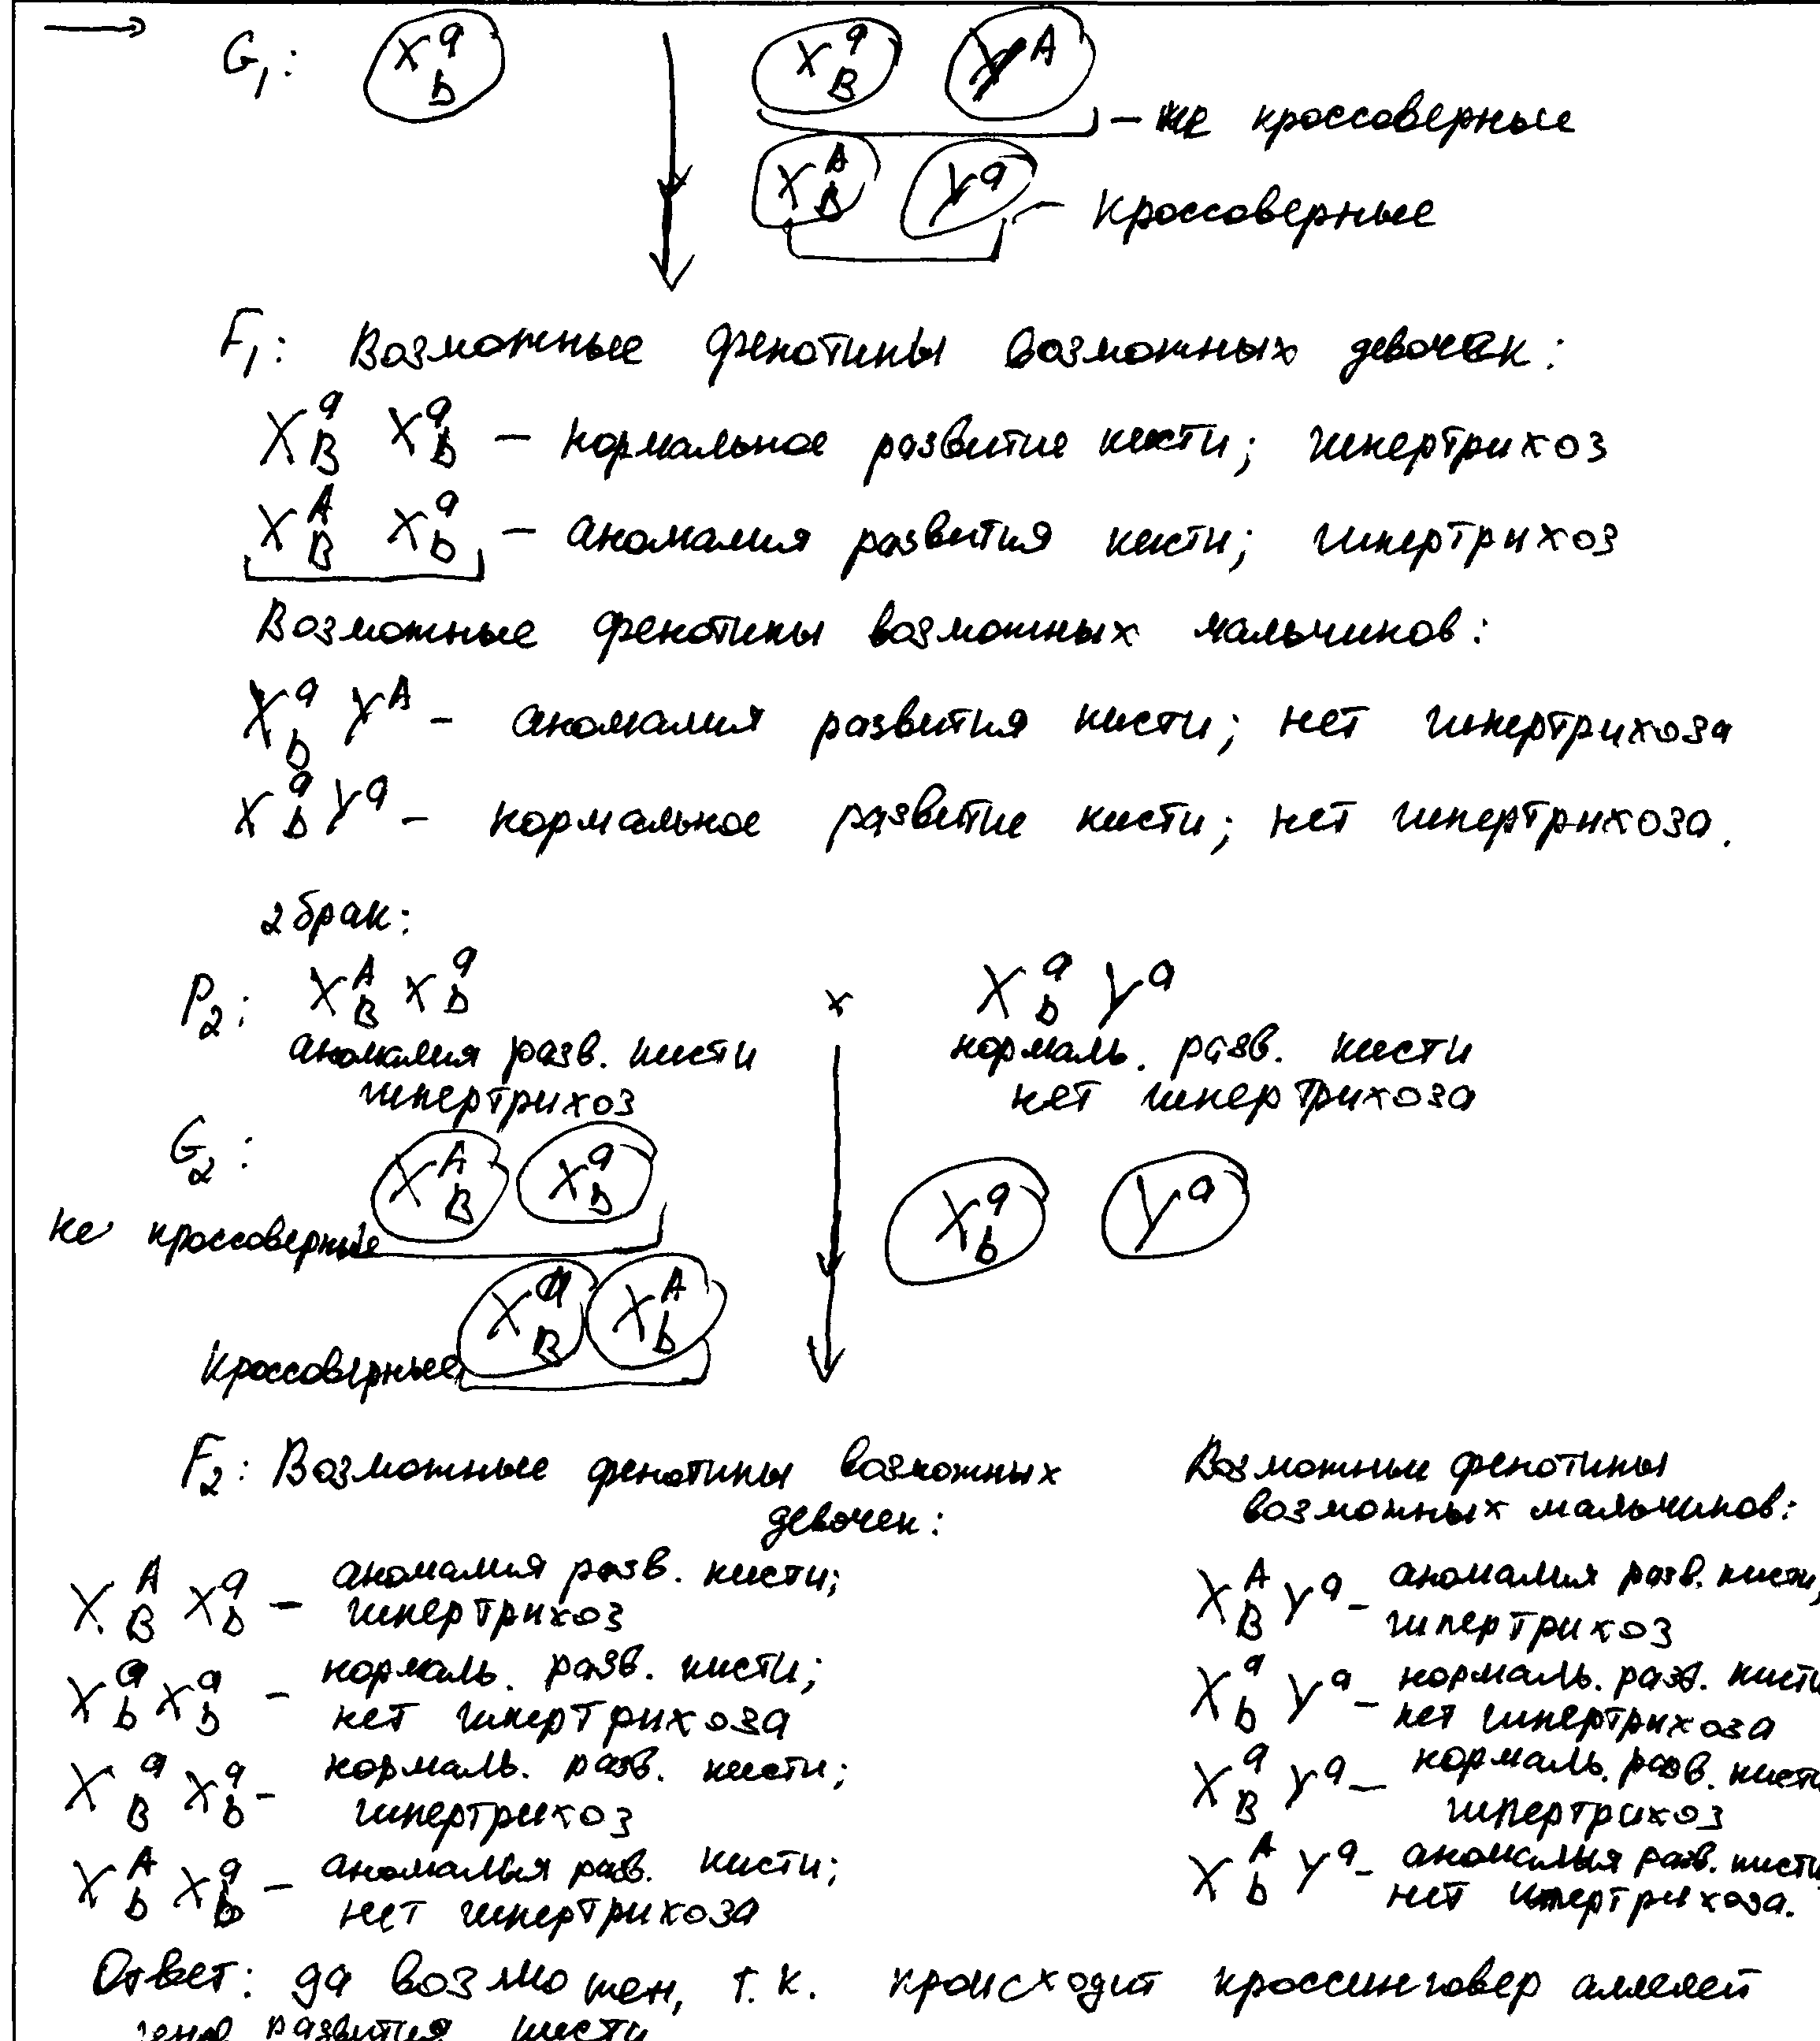 → G₁: Xᵃb XᵃB Yᴬ – не кроссоверные
XᴬB Yᵃ – кроссоверные
F₁: Возможные фенотипы возможных девочек:
XᵃB Xᵃb – нормальное развитие кисти; гипертрихоз
XᴬB Xᵃb – аномалия развития кисти; гипертрихоз
Возможные фенотипы возможных мальчиков:
Xᵃb Yᴬ – аномалия развития кисти; нет гипертрихоза
Xᵃb Yᵃ – нормальное развитие кисти; нет гипертрихоза.
2 брак:
P₂: XᴬB Xᵃb x Xᵃb Yᵃ
аномалия разв. кисти нормаль. разв. кисти
гипертрихоз нет гипертрихоза
G₂: XᴬB Xᵃb Xᵃb Yᵃ
не кроссоверные
XᵃB Xᴬb
кроссоверные
F₂: Возможные фенотипы возможных
девочек:
XᴬB Xᵃb – аномалия разв. кисти;
гипертрихоз
Xᵃb Xᵃb – нормаль. разв. кисти;
нет гипертрихоза
XᵃB Xᵃb – нормаль. разв. кисти;
гипертрихоз
Xᴬb Xᵃb – аномалья разв. кисти;
нет гипертрихоза
Возможные фенотипы
возможных мальчиков:
XᴬB Yᵃ – аномалия разв. кисти;
гипертрихоз
Xᵃb Yᵃ – нормаль. разв. кисти
нет гипертрихоза
XᵃB Yᵃ – нормаль. разв. кисти
гипертрихоз
Xᴬb Yᵃ – аномалья разв. кисти;
нет гипертрихоза.
Ответ: да возможен, т.к. происходит кроссинговер аллелей
гена развития кисти